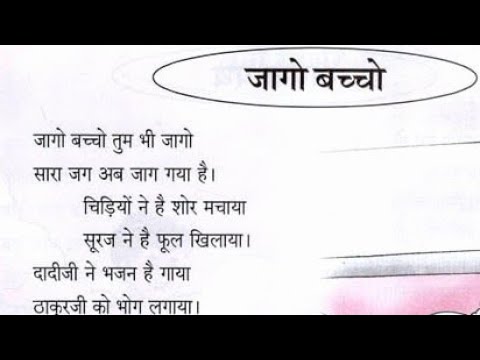 जागो बच्चो
जागो बच्चो तुम भी जागो
सारा जग अब जाग गया है।
चिड़ियों ने है शोर मचाया
सूरज ने है फूल खिलाया।
दादीजी ने भजन है गाया
ठाकुरजी को भोग लगाया।